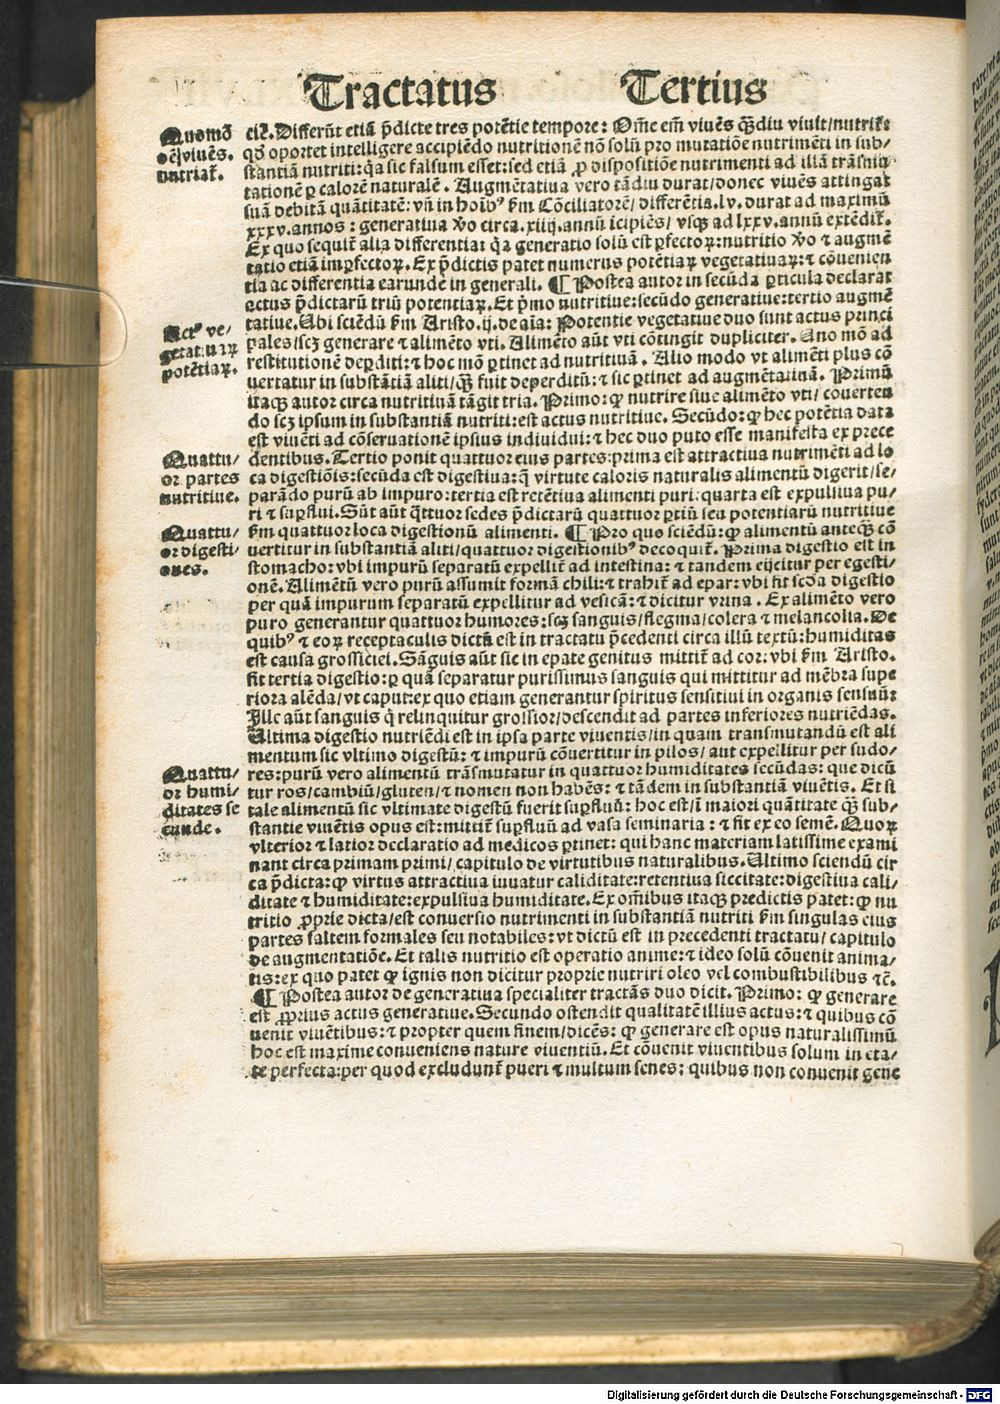 Tractatus Tertius
Quomō
oē viuēs.
nutriat̄.
Actꝰ ve/
getatiuaꝝ
potētiaꝝ.
Quattu/
or partes
nutritiue.
Quattu/
or digesti/
ones.
Quattu/
or humi/
ditates se
cunde.
eiꝰ. Differūt etiā p̄dicte tres potētie tempore: Om̄e em̄ viuēs q̄ȝdiu viuit/nutrit̄:
qd̄ oportet intelligere accipiēdo nutritionē nō solū pro mutatiōe nutrimēti in sub/
stantiā nutriti: q̄a sic falsum esset: sed etiā ꝓ dispositiōe nutrimenti ad illā trāsmu
tationē ꝑ calorē naturalē. Augmētatiua vero tādiu durat/donec viuēs attingat
suā debitā quātitatē: vn̄ in hoībꝰ ẜm Cōciliatorē/differētia.lv. durat ad maximū
xxxv.annos: generatiua v̄o circa.xiiij.annū īcipiēs/vsqȝ ad lxxv.annū extēdit̄.
Ex quo sequit̄ alia differentia: q̄a generatio solū est ꝑfectoꝝ: nutritio v̄o ⁊ augmē
tatio etiā imꝑfectoꝝ. Ex p̄dictis patet numerus potētiaꝝ vegetatiuaꝝ: ⁊ cōuenien
tia ac differentia earundē in generali. ¶ Postea autor in secūda ꝑticula declarat
actus p̄dictarū triū potentiaꝝ. Et p̄mo nutritiue: secūdo generatiue: tertio augmē
tatiue. Ubi sciēdū ẜm Aristo.ij. de aīa: Potentie vegetatiue duo sunt actus princi
pales/scȝ generare ⁊ alimēto vti. Alimēto aūt vti cōtingit dupliciter. Uno mō ad
restitutionē deꝑditi: ⁊ hoc mō ꝑtinet ad nutritiuā. Alio modo vt alimēti plus cō
uertatur in substātiā aliti/q̄ȝ fuit deperditū: ⁊ sic ꝑtinet ad augmētatiuā. Primū
itaqȝ autor circa nutritiuā tāgit tria. Primo: ꝙ nutrire siue alimēto vti/conuerten
do scȝ ipsum in substantiā nutriti: est actus nutritiue. Secūdo: ꝙ hec potētia data
est viuēti ad cōseruationē ipsius indiuidui: ⁊ hec duo puto esse manifesta ex prece
dentibus. Tertio ponit quattuor eius partes: prima est attractiua nutrimēti ad lo
ca digestiōis: secūda est digestiua: q̄ virtute caloris naturalis alimentū digerit/se/
parādo purū ab impuro: tertia est retētiua alimenti puri: quarta est expulsiua pu/
ri ⁊ suꝑflui. Sūt aūt q̄ttuor sedes p̄dictarū quattuor ꝑtiū seu potentiarū nutritiue
ẜm quattuor loca digestionū alimenti. ¶ Pro quo sciēdū: ꝙ alimentū anteq̄ȝ cō
uertitur in substantiā aliti/quattuor digestionibꝰ decoquit̄. Prima digestio est in
stomacho: vbi impurū separatū expellit̄ ad intestina: ⁊ tandem eijcitur per egesti/
onē. Alimētū vero purū assumit formā chili: ⁊ trahit̄ ad epar: vbi fit scd̄a digestio
per quā impurum separatū expellitur ad vesicā: ⁊ dicitur vrina. Ex alimēto vero
puro generantur quattuor humores: scȝ sanguis/flegma/colera ⁊ melancolia. De
quibꝰ ⁊ eoꝝ receptaculis dictū est in tractatu p̄cedenti circa illū textū: humiditas
est causa grossiciei. Sāguis aūt sic in epate genitus mittit̄ ad cor: vbi ẜm Aristo.
fit tertia digestio: ꝑ quā separatur purissimus sanguis qui mittitur ad mēbra supe
riora alēda/vt caput: ex quo etiam generantur spiritus sensitiui in organis sensuū:
Ille aūt sanguis q̄ relinquitur grossior/descendit ad partes inferiores nutriēdas.
Ultima digestio nutriēdi est in ipsa parte viuentis/in quam transmutandū est ali
mentum sic vltimo digestū: ⁊ impurū cōuertitur in pilos/aut expellitur per sudo/
res: purū vero alimentū trāsmutatur in quattuor humiditates secūdas: que dicū
tur ros/cambiū/gluten/⁊ nomen non habēs: ⁊ tādem in substantiā viuētis. Et si
tale alimentū sic vltimate digestū fuerit suꝑfluū: hoc est/ī maiori quātitate q̄ȝ sub/
stantie viuētis opus est: mittit̄ suꝑfluū ad vasa seminaria: ⁊ fit ex eo semē. Quoꝝ
vlterior ⁊ latior declaratio ad medicos ꝑtinet: qui hanc materiam latissime exami
nant circa primam primi/capitulo de virtutibus naturalibus. Ultimo sciendū cir
ca p̄dicta: ꝙ virtus attractiua iuuatur caliditate: retentiua siccitate: digestiua cali/
ditate ⁊ humiditate: expulsiua humiditate. Ex om̄ibus itaqȝ predictis patet: ꝙ nu
tritio ꝓprie dicta/est conuersio nutrimenti in substantiā nutriti ẜm singulas eius
partes saltem formales seu notabiles: vt dictū est in precedenti tractatu/capitulo
de augmentatiōe. Et talis nutritio est operatio anime: ⁊ ideo solū cōuenit anima/
tis: ex quo patet ꝙ ignis non dicitur proprie nutriri oleo vel combustibilibus ⁊c̄.
¶ Postea autor de generatiua specialiter tractās duo dicit. Primo: ꝙ generare
est ꝓprius actus generatiue. Secundo ostendit qualitatē illius actus: ⁊ quibus cō
uenit viuētibus: ⁊ propter quem finem/dicēs: ꝙ generare est opus naturalissimū
hoc est maxime conueniens nature viuentiū. Et cōuenit viuentibus solum in eta/
te perfecta: per quod excludunt̄ pueri ⁊ multum senes: quibus non conuenit gene
Digitalisierung gefördert durch die Deutsche Forschungsgemeinschaft - DFG